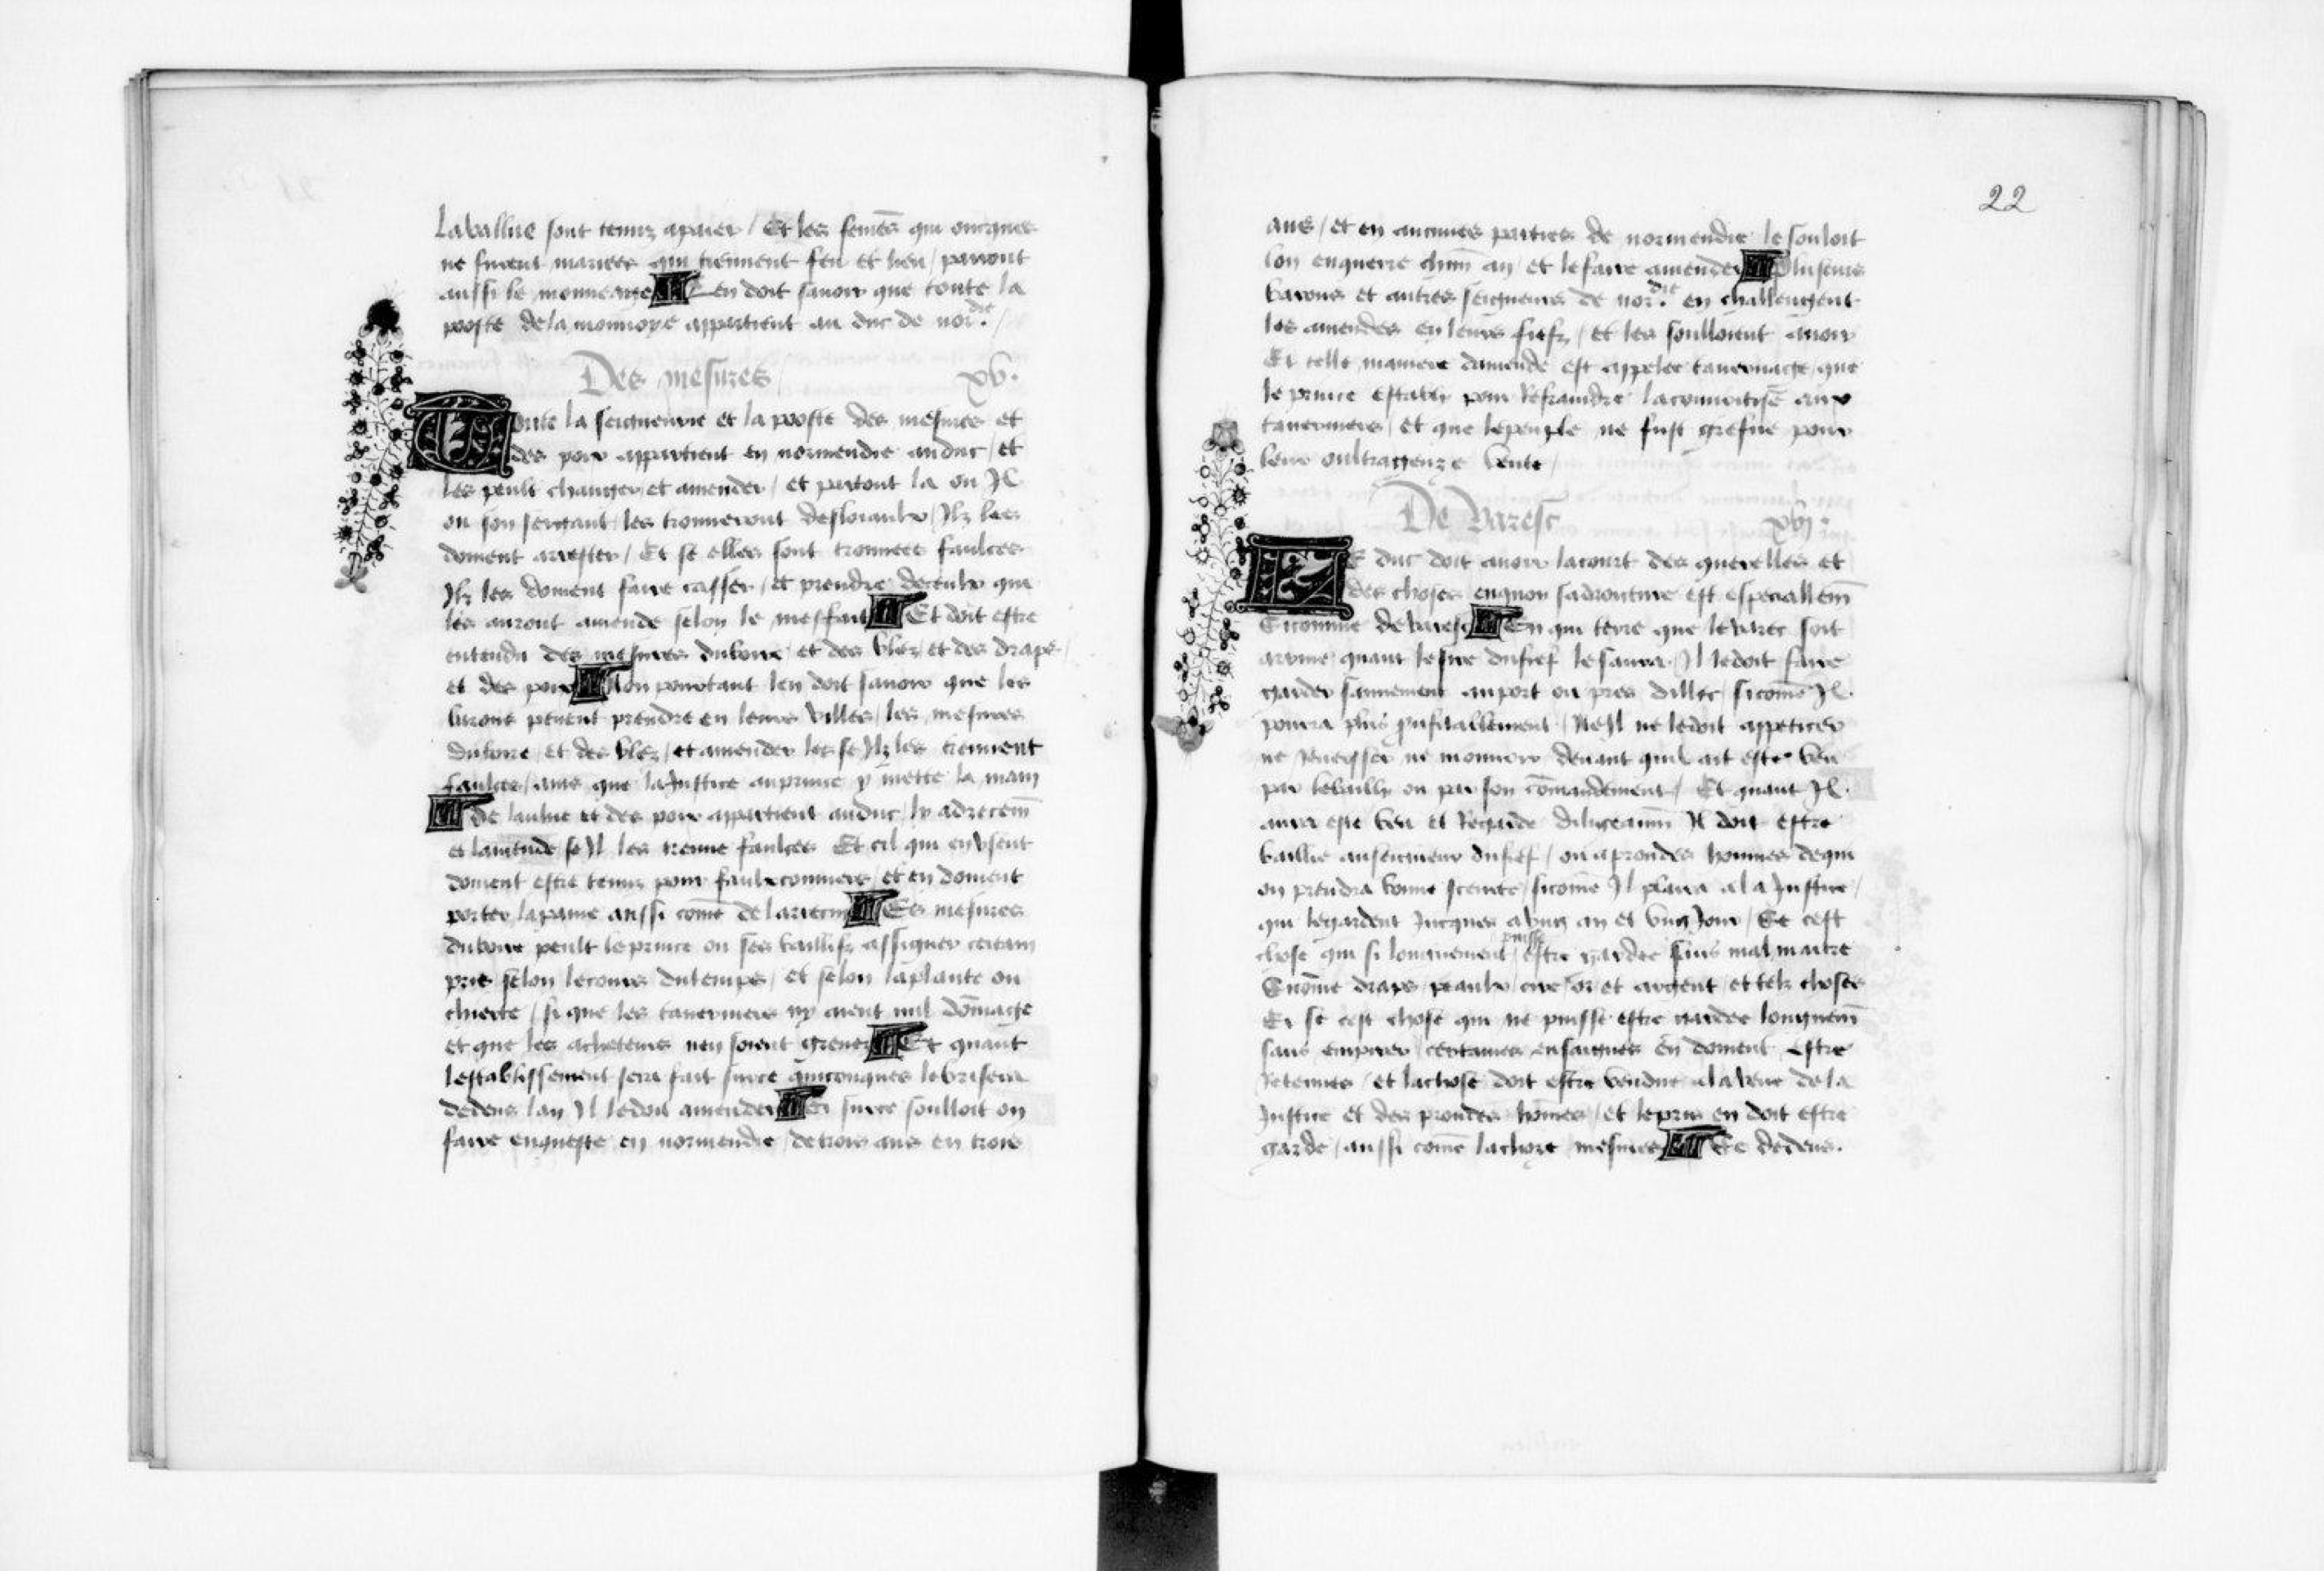 La vallue sont tenuz a paier / Et les femēs qui oncques
ne furent mariees qui tiennent feu et lieu / paieront
aussi le monneage Len doit savoir que toute la
pooste de la monnoye appartient au duc de nordie. /
Des mesures xv.
Toute la seigneurie et la pooste des mesures et
des pois appartient en normendie au duc / et
les peult changer et amender / et partout la ou Il
ou son sergant les trouveront desloiaulx / Ilz les
doivent arrester / Et se elles sont trouvees faulces
Ilz les doivent faire casser / et prendre de ceulx qui
les auront amende selon le meffait Et doit estre
entendu des mesures du boire et des blez et des draps
et des pois Non pourtant len doit savoir que les
barons pevent prendre en leurs villes / les mesures
du boire et des blez / et amender les se Ilz les tiennent
faulces / ains que la Justice au prince y mette la main
De laulne et des pois appartient au duc / ly adrecem̄
et lamende se Il les treuve faulces Et cil qui en usent
doivent estre tenuz pour faulxconniers / et en doivent
porter la paine aussi come de larrecin Es mesures
du boire peult le prince ou ses baillifz assigner certain
pris selon le cours du temps / et selon la plante ou
chierte / si que les taverniers ny aient nul dōmage
et que les acheteurs nen soient grevez Et quant
lestablissement sera fait surce quiconques le brisera
dedens lan Il le doit amender Et surce soulloit on
faire enqueste en normendie de trois ans en trois
22
ans / et en aucunes parties de normendie le souloit
lon enquerre chun̄ an / et le faire amender Plusieurs
barons et autres seigneurs de nordie. en challengent
les amendes en leurs fiefz / et les soulloient avoir
Et telle maniere damende est appelee tavernage que
le prince establi pour Refraindre la convoitise aux
taverniers / et que le peuple ne fust grefve pour
leur oultrageuze vente /
De Varesc xvj.
Le duc doit avoir la court des querelles et
des choses en quoy sa droiture est especiallem̄
Sicomme de varesc En qui terre que le varec soit
arrive quant le sire du fief le saura / Il le doit faire
garder sainnement au port ou pres dillec sicomē Il
pourra plus prufitablement / Ne Il ne le doit appeticer
ne
ne mouvoir devant quil ait este veu
par le bailly ou par son cōmandement / Et quant Il
aura este veu et Regarde diligeamm̄ Il doit estre
baillie au seigneur du fief / ou a preudes hommes de qui
on prendra bonne sceurte sicomē Il plaira a la Justice /
qui le gardent jucques a ung an et ung Jour / Se cest
chose qui si longuement puisse estre gardee sans mal maitre
Sicōme draps peaulx / cire or et argent et telz choses
Et se cest chose qui ne puisse estre gardee longuem̄
sans empirer certaines ensaignes en doivent estre
retenues / et la chose doit estre vendue a la veue de la
Justice et des preudes hōmes / et le pris en doit estre
garde / aussi come la choze mesmes Et dedens.